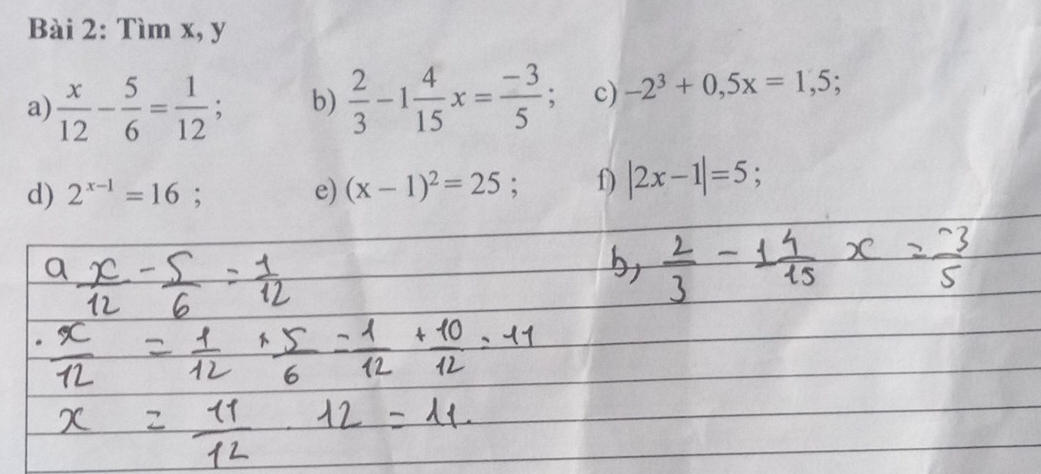 Bài 2: Tìm x, y
a) x/12 − 5/6 = 1/12 ; b) 2/3 − 1 4/15 x = −3/5 ; c) −2³ + 0,5x = 1,5;
d) 2ˣ⁻¹ = 16 ; e) (x − 1)² = 25 ; f) |2x−1|=5 ;
a x/12 − 5/6 = 1/12 b, 2/3 − 1 4/15 x = −3/5
. x/12 = 1/12 + 5/6 = 1/12 + 10/12 = 11
x = 11/12 . 12 = 11.